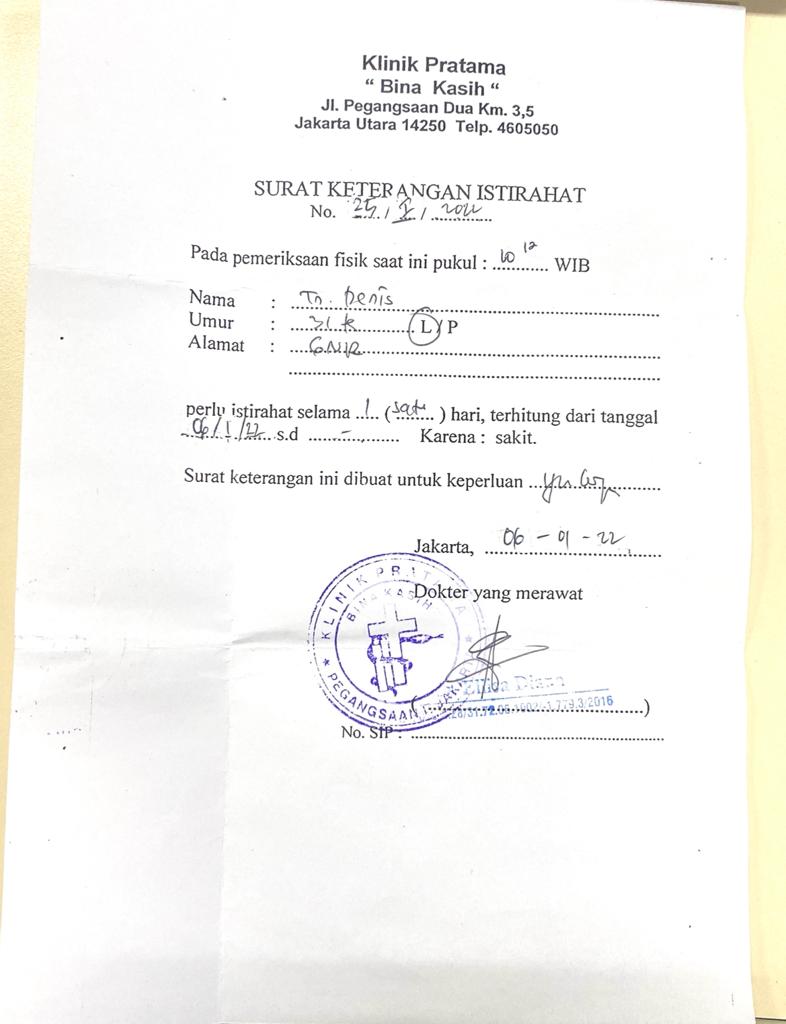 Klinik Pratama
“ Bina Kasih “
Jl. Pegangsaan Dua Km. 3,5
Jakarta Utara 14250 Telp. 4605050
SURAT KETERANGAN ISTIRAHAT
No. 25 / I / 2022
Pada pemeriksaan fisik saat ini pukul : 10 12 WIB
Nama : Tn. Denis
Umur : L / P
Alamat :
perlu istirahat selama 1 (satu) hari, terhitung dari tanggal
06/1/22 s.d - Karena : sakit.
Surat keterangan ini dibuat untuk keperluan
Jakarta, 06 - 01 - 22
Dokter yang merawat
KLINIK PRATAMA
BINA KASIH
PEGANGSAAN
Diana
(..........)
No. SIP :